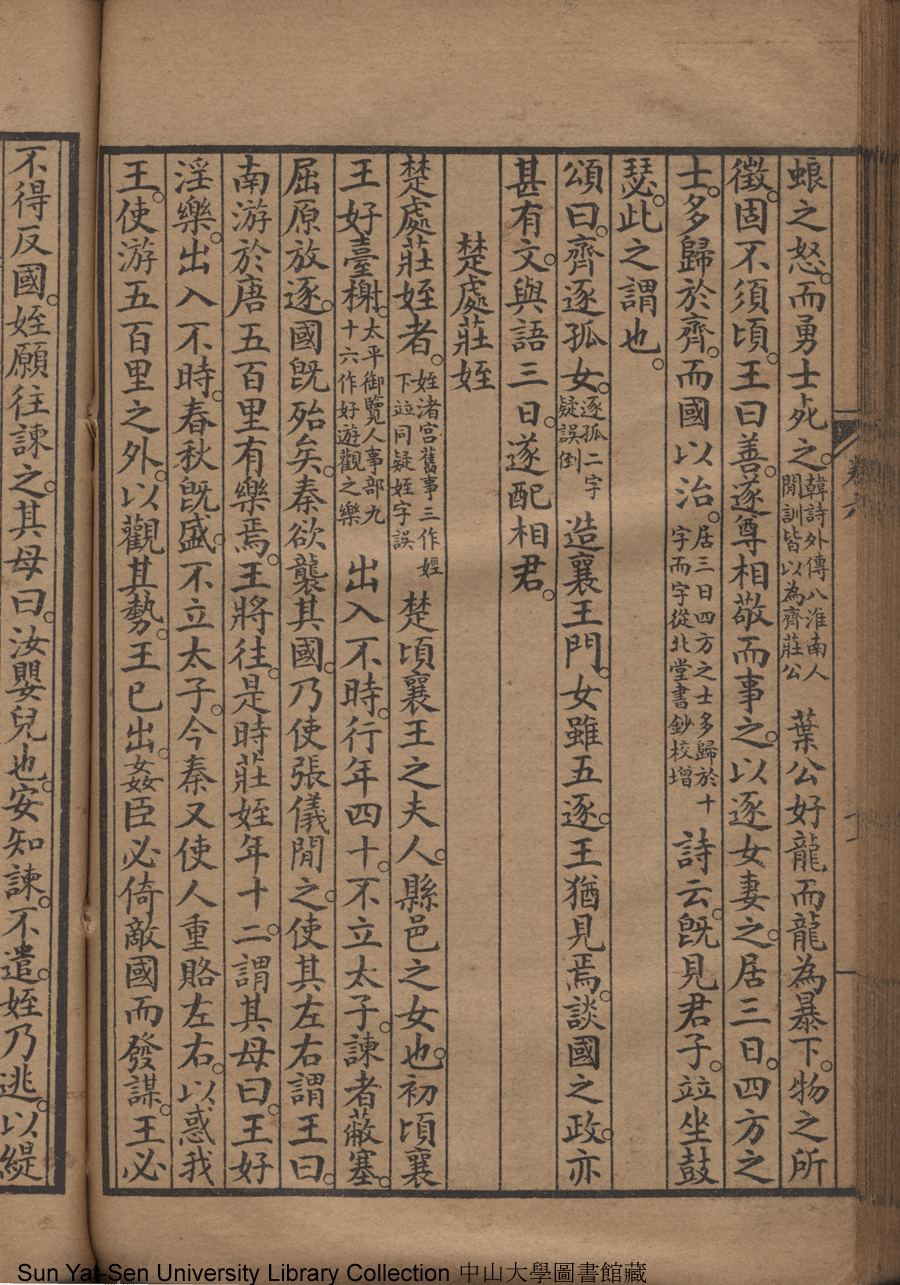 蜋之怒。而勇士死之。韓詩外傳八淮南人閒訓皆以為齊莊公葉公好龍而龍為暴下。物之所
徵。固不須頃。王曰善。遂尊相敬而事之。以逐女妻之。居三日。四方之
士。多歸於齊。而國以治。居三日四方之士多歸於十字而字從北堂書鈔校增詩云。旣見君子。竝坐鼓
瑟。此之謂也。
頌曰。齊逐孤女。逐孤二字疑誤倒造襄王門。女雖五逐。王猶見焉。談國之政。亦
甚有文。與語三日。遂配相君。
楚處莊姪
楚處莊姪者。姪渚宮舊事三作娙下竝同疑姪字誤楚頃襄王之夫人。縣邑之女也。初頃襄
王好臺榭。太平御覽人事部九十六作好遊觀之樂出入不時。行年四十。不立太子。諫者蔽塞。
屈原放逐。國旣殆矣。秦欲襲其國。乃使張儀閒之。使其左右謂王曰。
南游於唐五百里有樂焉。王將往。是時莊姪年十二。謂其母曰。王好
淫樂。出入不時。春秋旣盛。不立太子。今秦又使人重賂左右。以惑我
王。使游五百里之外。以觀其勢。王已出。姦臣必倚敵國而發謀。王必
不得反國。姪願往諫之。其母曰。汝嬰兒也。安知諫。不遣。姪乃逃。以緹
卷六
Sun Yat-Sen University Library Collection 中山大學圖書館藏